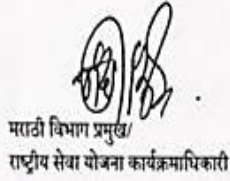 मराठी विभाग प्रमुख/
राष्ट्रीय सेवा योजना कार्यक्रमाधिकारी